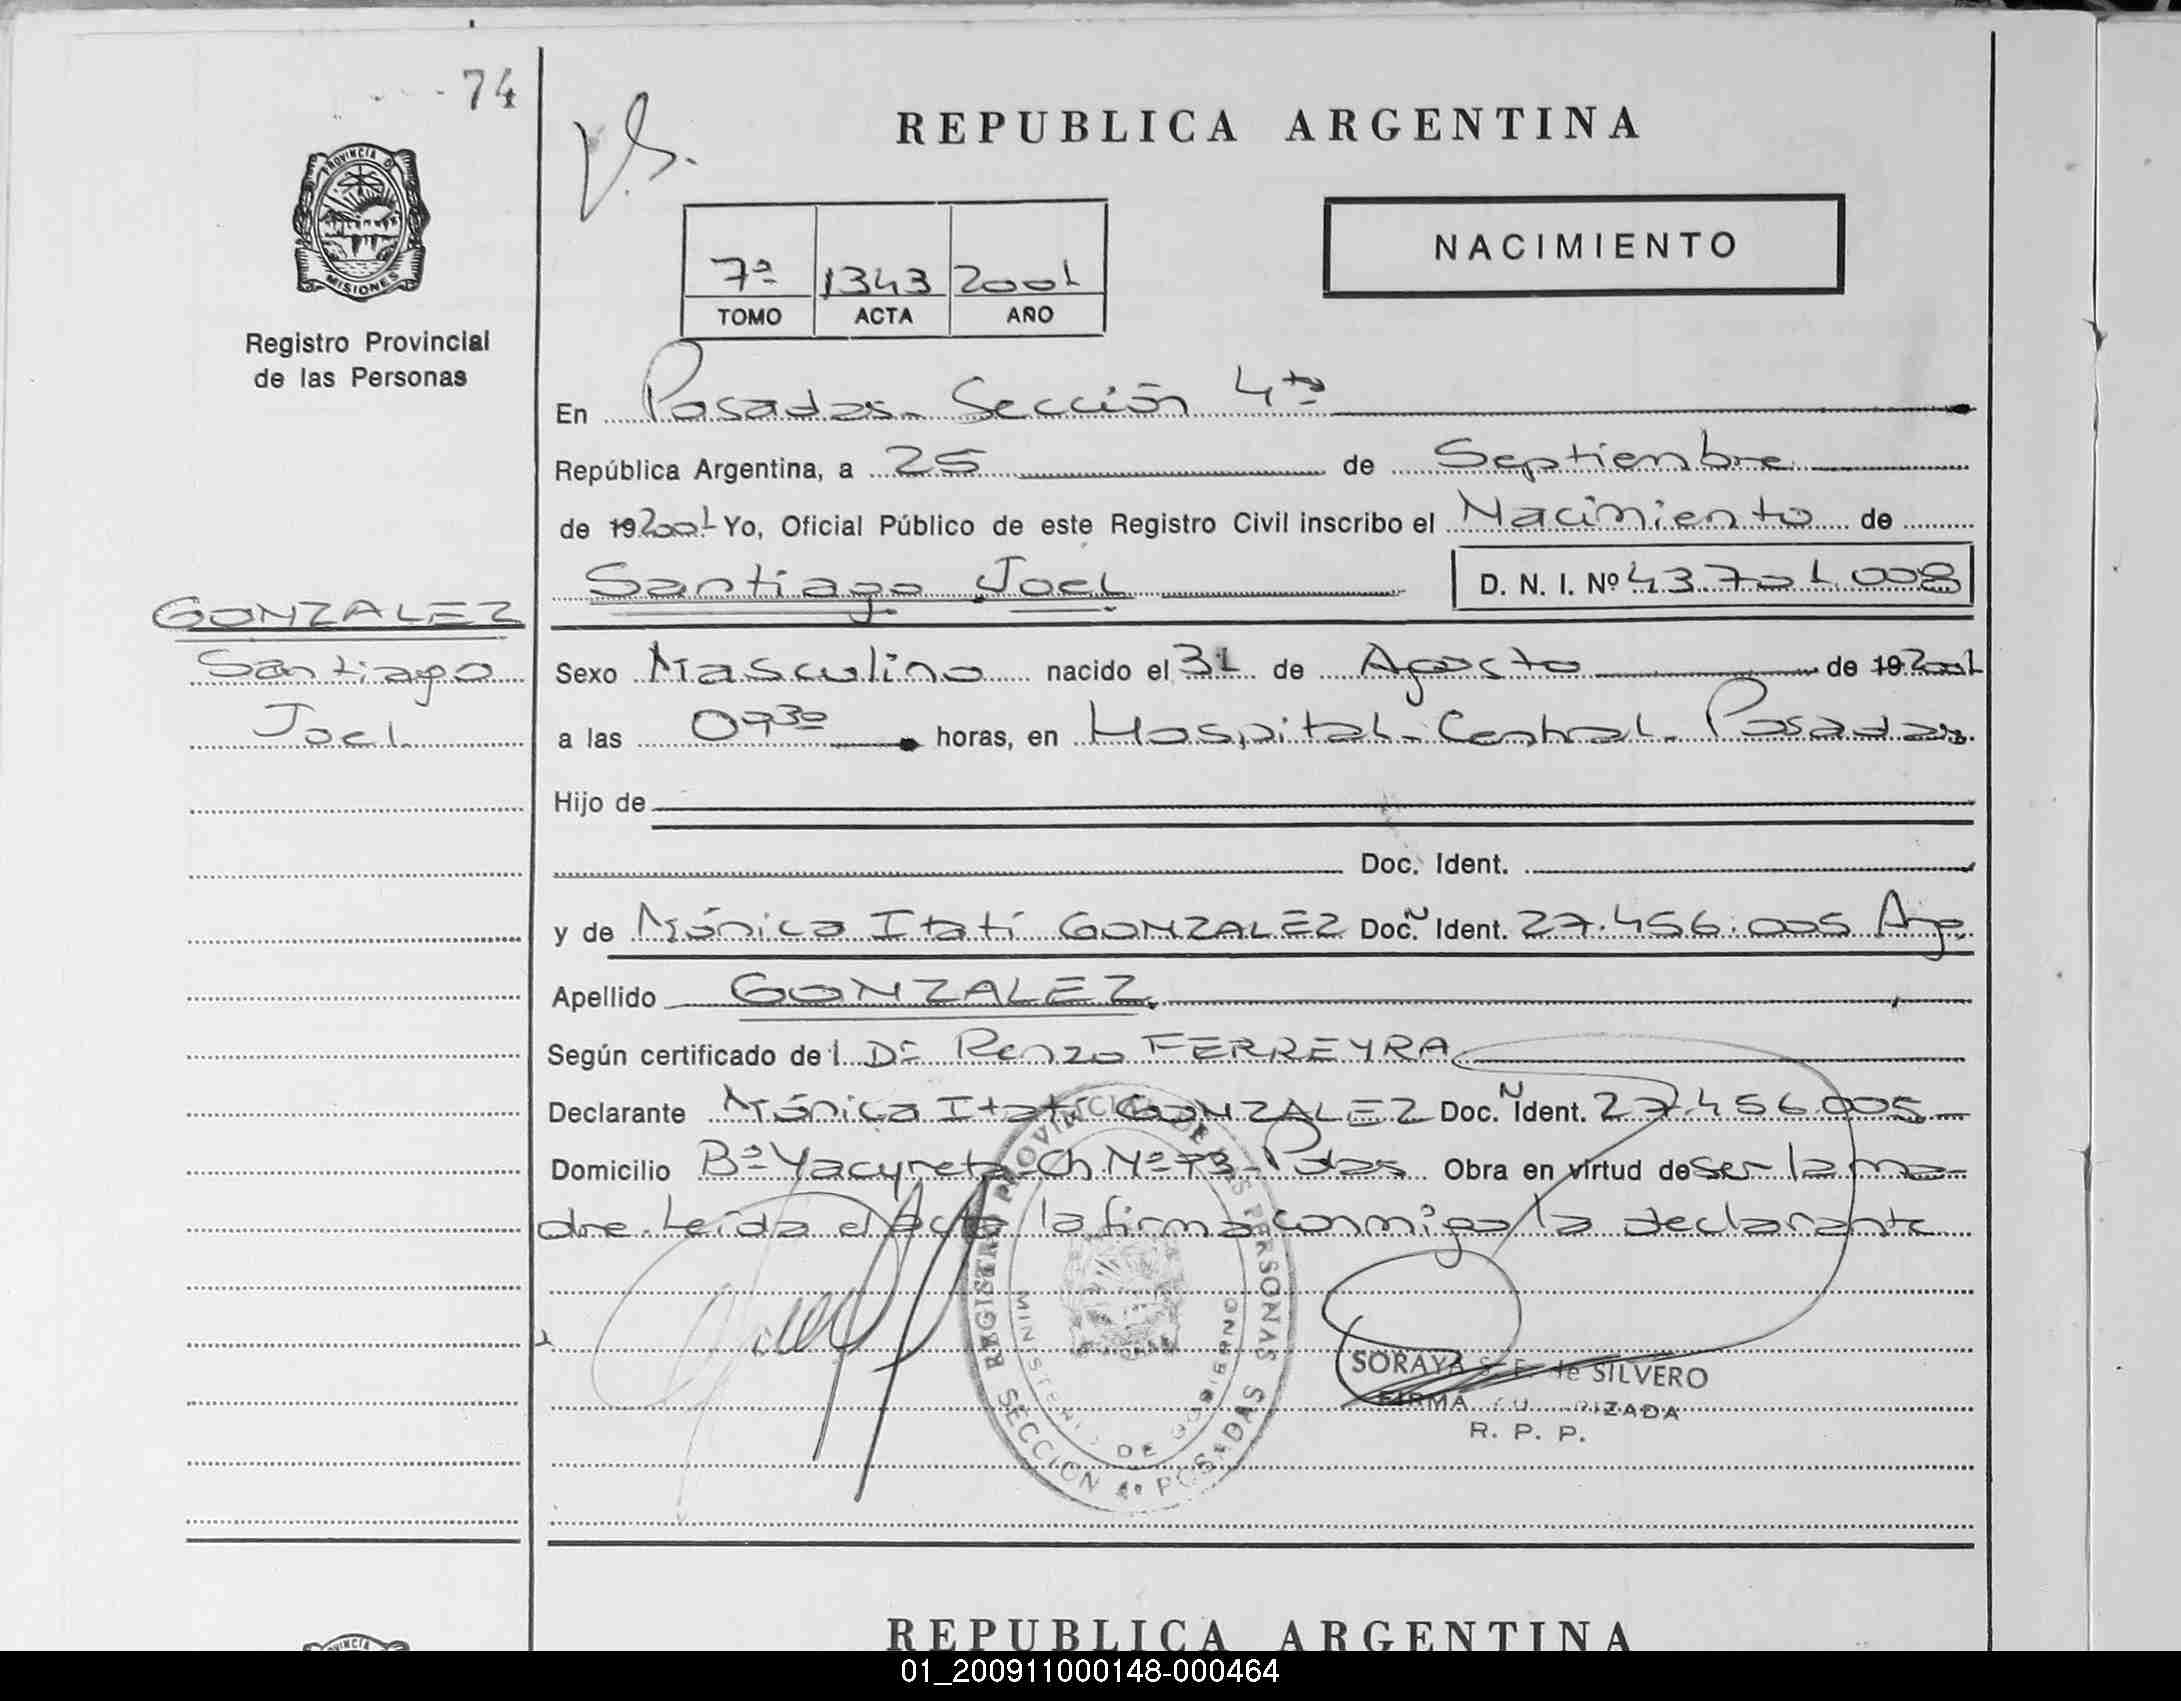 74
REPUBLICA ARGENTINA
PROVINCIA DE
MISIONES
Registro Provincial
de las Personas
NACIMIENTO
7ª 1343 2001
TOMO ACTA AÑO
En Posadas - Sección 4ta
República Argentina, a 25 de Septiembre
de 19 2001 Yo, Oficial Público de este Registro Civil inscribo el Nacimiento de
Santiago Joel D. N. I. Nº 43.701.008
GONZALEZ
Santiago
Joel
Sexo Masculino nacido el 31 de Agosto de 19 2001
a las 0930 horas, en Hospital Central Posadas
Hijo de
Doc. Ident.
y de Mónica Itatí GONZALEZ Doc. N Ident. 27.456.005 Arg.
Apellido GONZALEZ
Según certificado del Dr Renzo FERREYRA
Declarante Mónica Itatí GONZALEZ Doc. N Ident. 27.456.005
Domicilio Bº Yacyreta Ch Nº 73 - Pdas Obra en virtud de ser la ma-
dre. Leida el acta la firma conmigo la declarante
REGISTRO PROVINCIAL DE LAS PERSONAS
MINISTERIO DE GOBIERNO
SECCION 4º POSADAS
SORAYA S. E. de SILVERO
FIRMA AUTORIZADA
R. P. P.
REPUBLICA ARGENTINA
01_200911000148-000464